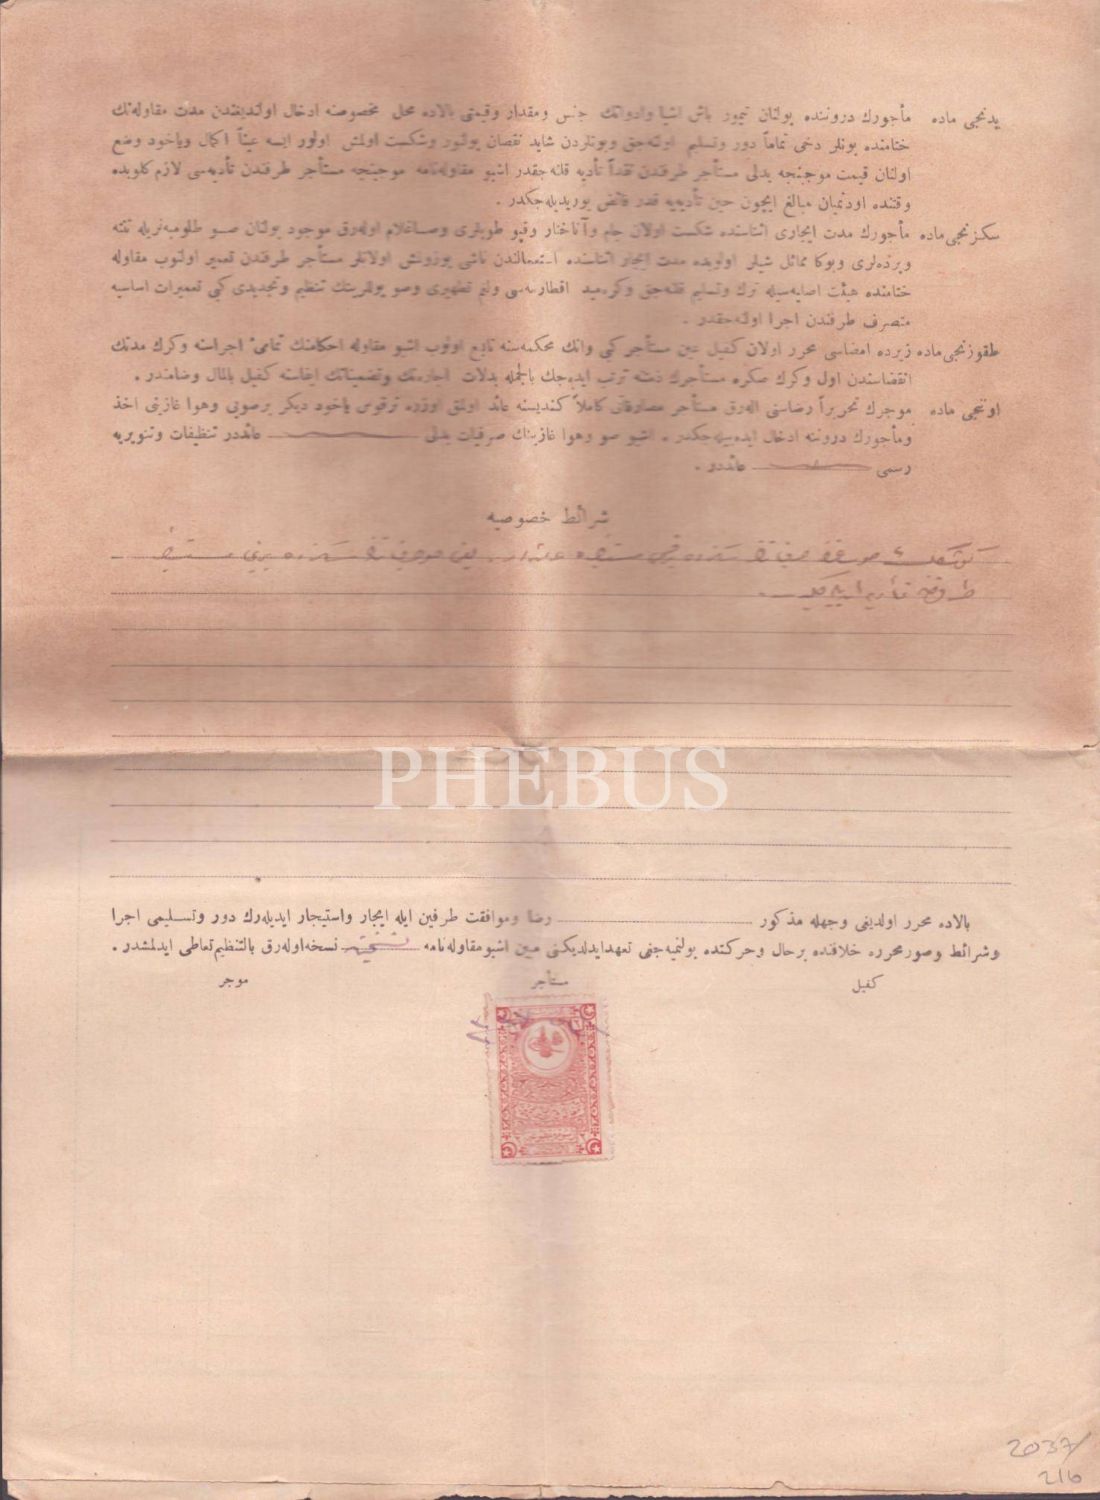 يدنجى ماده مأجورك دروننده بولنان تيمور باش اشيا وادواتك جنس ومقدار وقيمتى بالاده محل مخصوصنه ادخال اولنديغندن مدت مقاوله‌نك
ختامنده بونلر دخى تماماً دور وتسليم اولنه‌جق وبونلردن شايد نقصان بولنور وشكست اولمش اولور ايسه عيناً اكمال وياخود وضع
اولنان قيمت موجبنجه بدلى مستأجر طرفندن نقداً تأديه قلنه‌جقدر اشبو مقاوله‌نامه موجبنجه مستأجر طرفندن تأديه‌سى لازم كلوبده
وقتنده اودنميان مبالغ ايچون حين تأديه‌يه قدر فائض يوريديله‌جكدر .
سكزنجى ماده مأجورك مدت ايجارى اثناسنده شكست اولان جام وآناختار وقپو طوپلرى وصاغلام اوله‌رق موجود بولنان صو طلومبه‌لريله تنته
وپرده‌لرى وبوكا مماثل شيلر اولوبده مدت ايجار اثناسنده استعمالندن ناشى بوزولمش اولانلر مستأجر طرفندن تعمير اولنوب مقاوله
ختامنده هيئت اصليه‌سيله ترك وتسليم قلنه‌جق وكره‌ميد اقطارمه‌سى ولغم تطهيرى وصو يوللرينك تنظيم وتجديدى كبى تعميرات اساسيه
متصرف طرفندن اجرا اولنه‌جقدر .
طقوزنجى ماده زيرده امضاسى محرر اولان كفيل عين مستأجر كبى وانك محكمه‌سنه تابع اولوب اشبو مقاوله احكامنك تمامئ اجراسنه وكرك مدتك
انقضاسندن اول وكرك صكره مستأجرك ذمتنه ترتب ايده‌جك بالجمله بدلات اجارمنك وتضميناتك ايفاسنه كفيل بالمال وضامندر .
اوننجى ماده موجرك تحريراً رضاسنى اله‌رق مستأجر مصارفاتى كاملاً كنديسنه عائد اولمق اوزره ترقوس ياخود ديكر برصويى وهوا غازينى اخذ
ومأجورك دروننه ادخال ايده‌بيله‌جكدر . اشبو صو وهوا غازينك صرفيات بدلى عائددر تنظيفات وتنويريه
رسمى عائددر .
شرائط خصوصيه
بالاده محرر اولديغى وجهله مذكور رضا وموافقت طرفين ايله ايجار واستيجار ايديله‌رك دور وتسليمى اجرا
وشرائط وصور محرره خلافنده برحال وحركتده بولنميه‌جغى تعهد ايدلديكنى مبين اشبو مقاوله‌نامه نسخه اوله‌رق بالتنظيم تعاطى ايدلمشدر .
كفيل مستأجر موجر
PHEBUS
2037/
216